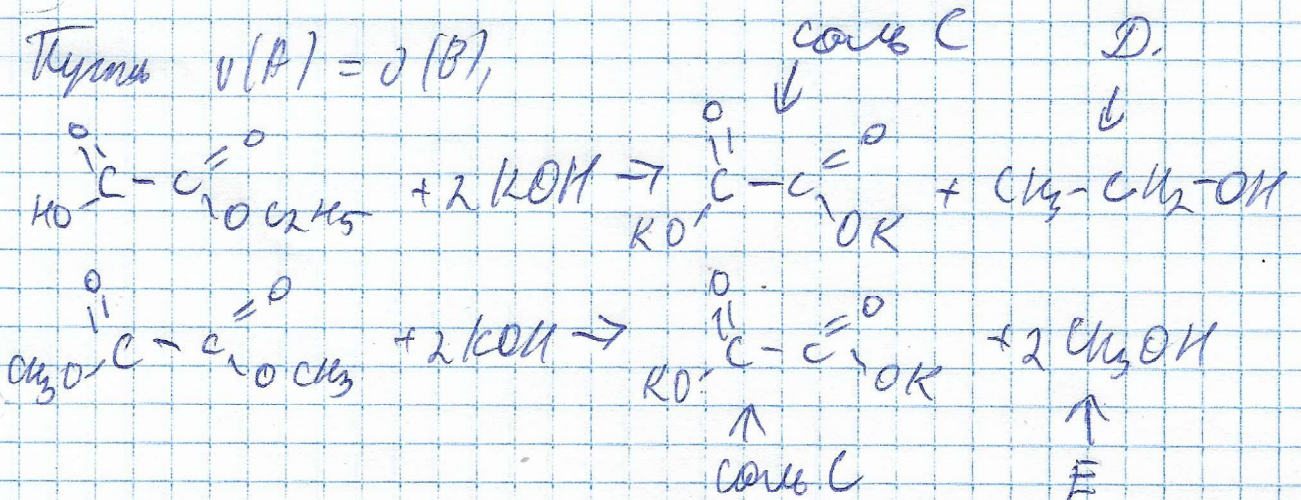 Пусть ν(A) = ν(B),
соль C D.
HO-C(=O)-C(=O)-OC2H5 + 2 KOH → KO-C(=O)-C(=O)-OK + CH3-CH2-OH
CH3O-C(=O)-C(=O)-OCH3 + 2 KOH → KO-C(=O)-C(=O)-OK + 2 CH3OH
соль C E